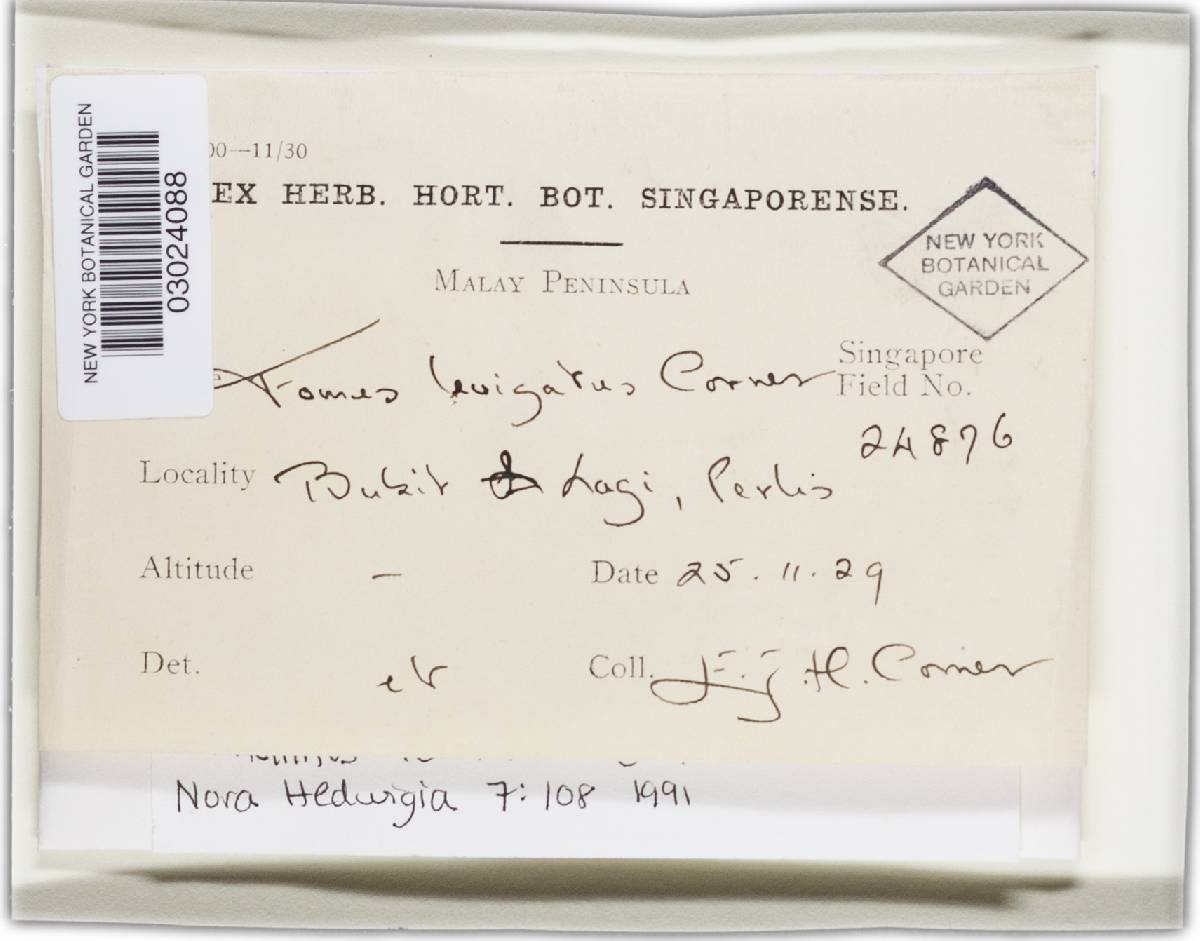 NEW YORK BOTANICAL GARDEN
03024088
00—11/30
EX HERB. HORT. BOT. SINGAPORENSE.
NEW YORK
BOTANICAL
GARDEN
MALAY PENINSULA
Fomes levigatus Corner
Singapore
Field No.
24876
Locality Bukit Lagi, Perlis
Altitude —
Date 25.11.29
Det.
Coll. E.J.H. Corner
Nova Hedwigia 7:108 1991